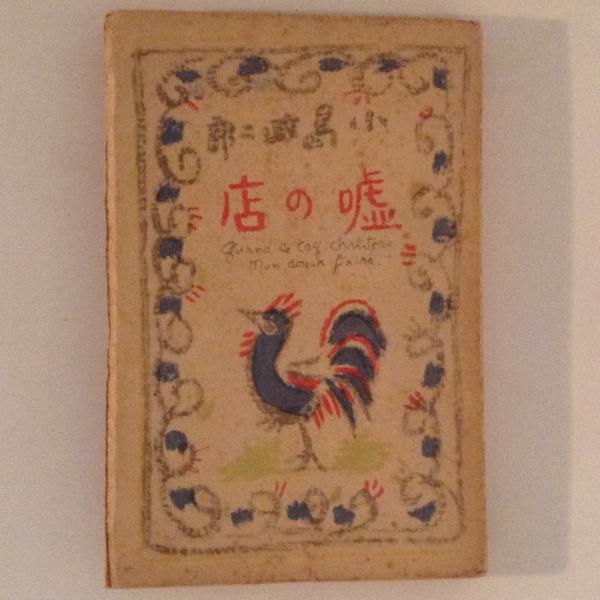 小島政二郎
嘘の店
Quand ce coq chantera
Mon amour finira.